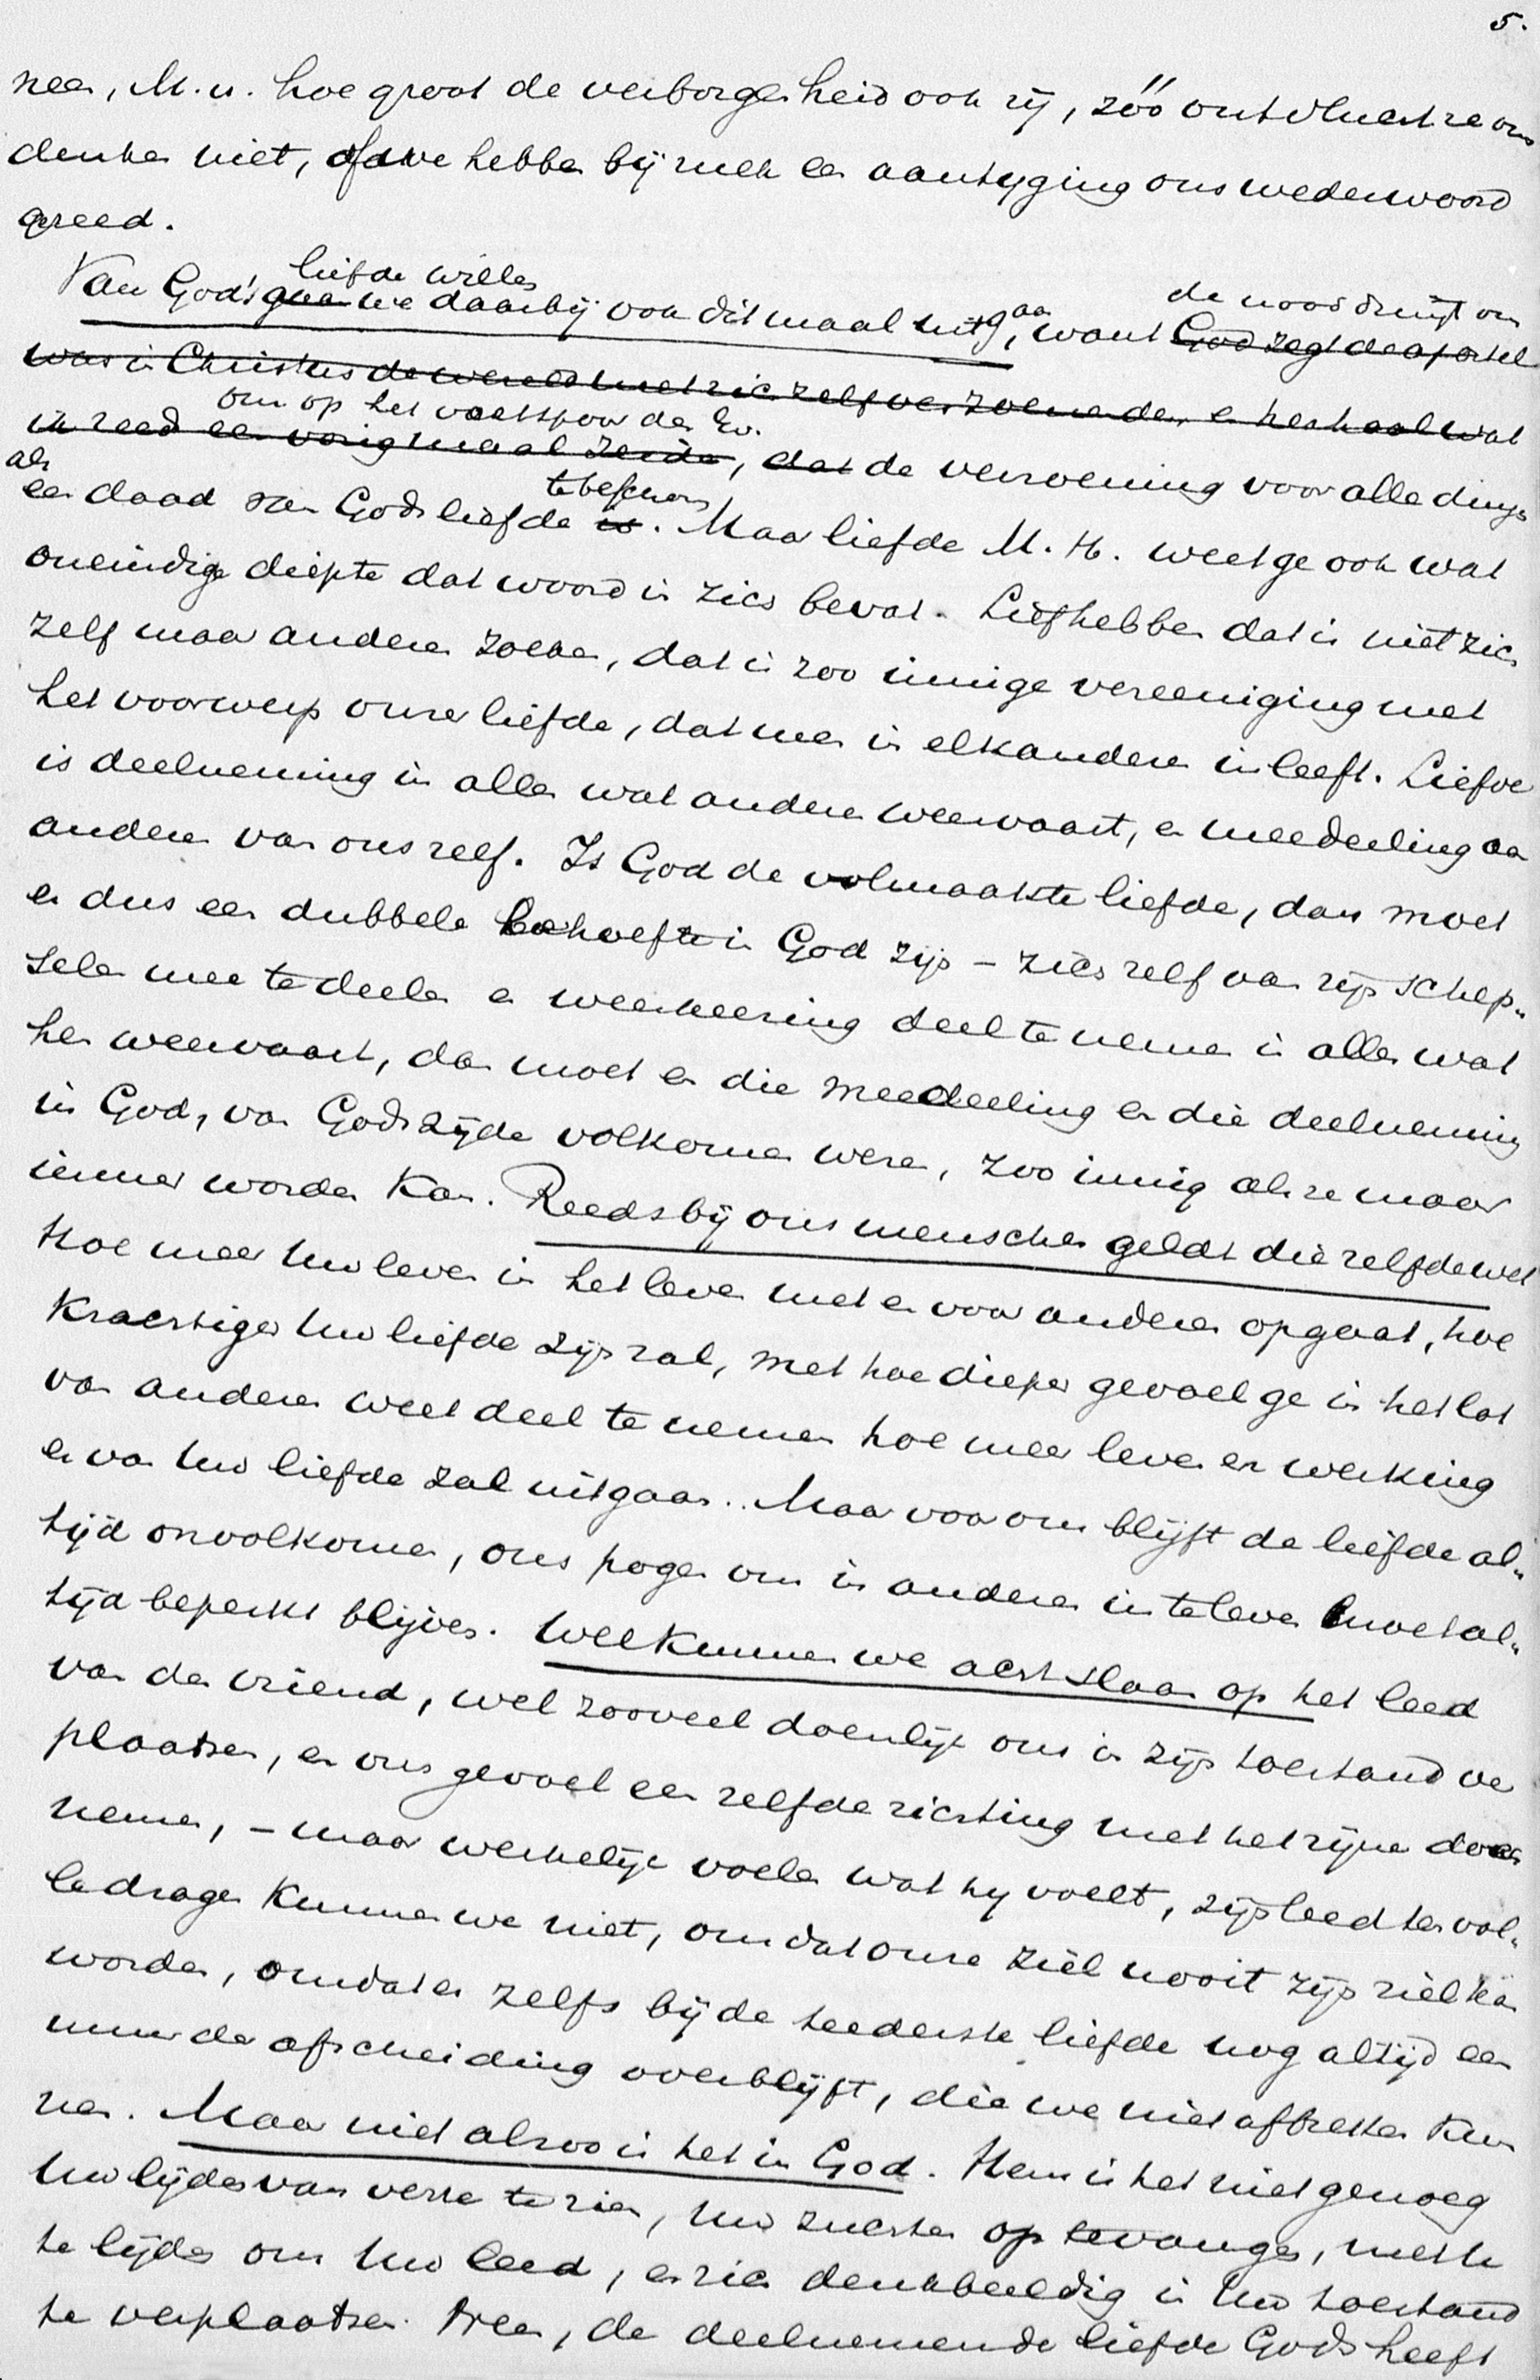 5.
neen, M. H. hoe groot de verborgenheid ook zij, zóó ontvlucht ze ons
denken niet, of we hebben bij zulk een aantyging ons wederwoord
gereed.
liefde willen de noordruijt om
Van God's gaan we daarbij ook ditmaal uitgaan, want God zegt de apostel
was in Christus de wereld met zich zelf verzoenende, en herhaal wat
om op het voetspoor der Ev.
ik reed een vorig maal zeide, dat de verzoening voor alle dingen
als te beschouwen
een daad van Gods liefde is. Maar liefde M. H. weet ge ook wat
oneindige diepte dat woord in zich bevat. Liefhebben dat is niet zich
zelf maar anderen zoeken, dat is zoo innige vereeniging met
het voorwerp onzer liefde, dat men in elkanderen inleeft. Liefde
is deelneming in alles wat anderen weervaart, en meedeeling aan
anderen van ons zelf. Is God de volmaakte liefde, dan moet
er dus een dubbele behoefte in God zijn – zich zelf aan zijn schep„
selen mee te deelen en weerkeering deel te nemen in alles wat
hen weervaart, dan moet en die meedeeling en die deelneming
in God, van Gods zijde volkomen wezen, zoo innig als ze maar
immer worden kan. Reeds bij ons menschen geldt diezelfde wet
Hoe meer Uw leven in het leven met en voor anderen opgaat, hoe
krachtiger Uw liefde zijn zal, met hoe dieper gevoel ge in het lot
van anderen weet deel te nemen hoe meer leven en werking
er van Uw liefde zal uitgaan. Maar voor ons blijft de liefde al„
tijd onvolkomen, ons pogen om in anderen in te leven moet al„
tijd beperkt blijven. Wel kunnen we acht slaan op het leed
van den vriend, wel zooveel doenlijk ons in zijn toestand ver
plaatsen, en ons gevoel een zelfde richting met het zijne doen
nemen, – maar werkelijk voelen wat hij voelt, zijn leed ten vol„
le dragen kunnen we niet, omdat onze ziel nooit zijn ziel kan
worden, omdat er zelfs bij de teederste liefde nog altijd een
muur der afscheiding overblijft, die we niet afbreken kun
nen. Maar niet alzoo is het in God. Hem is het niet genoeg
Uw lijden van verre te zien, Uw zuchten op te vangen, mee te
te lijden om Uw leed, en zich denkbeeldig in Uw toestand
te verplaatsen. Neen, de deelnemende liefde Gods heeft